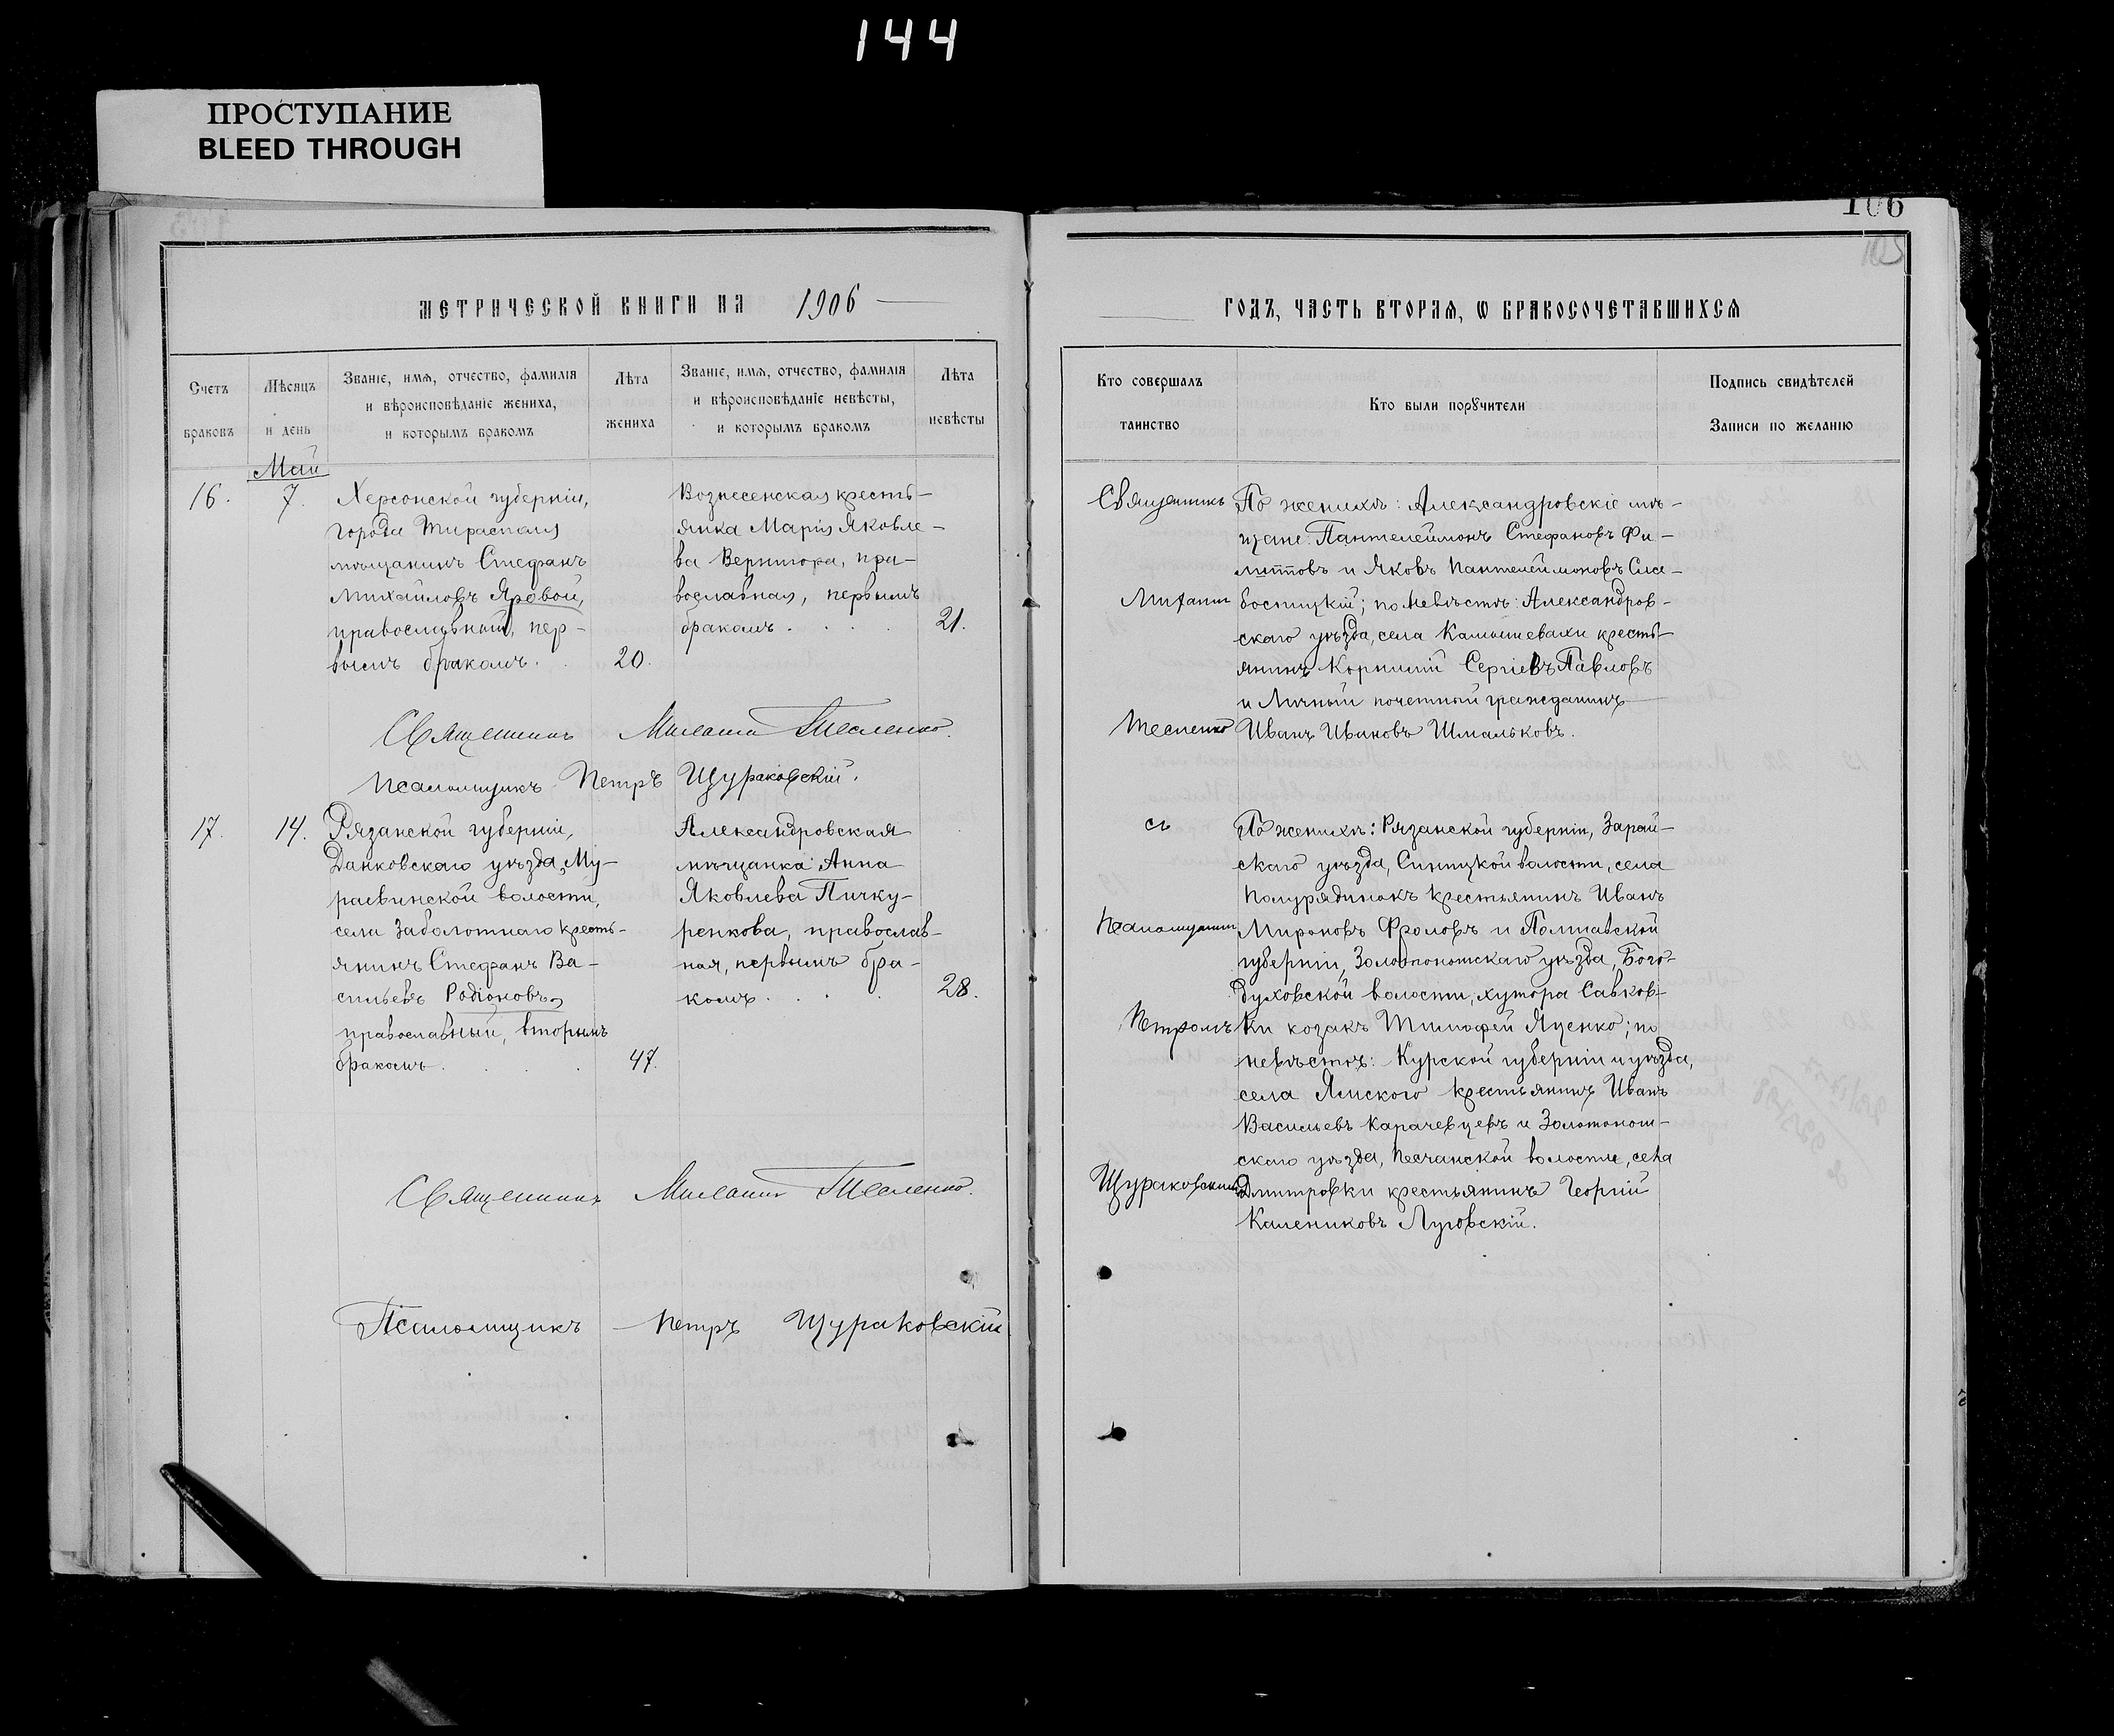 144
ПРОСТУПАНИЕ
BLEED THROUGH
106
105
МЕТРИЧЕСКОЙ КНИГИ НА 1906
ГОДЪ, ЧАСТЬ ВТОРАѦ, Ѡ БРАКОСОЧЕТАВШИХСѦ
Счетъ браковъ
Мѣсяцъ и день
Званіе, имѧ, отчество, фамилія и вѣроисповѣданіе жениха, и которымъ бракомъ
Лѣта жениха
Званіе, имѧ, отчество, фамилія и вѣроисповѣданіе невѣсты, и которымъ бракомъ
Лѣта невѣсты
Кто совершалъ таинство
Кто были порꙋчители
Подпись свидѣтелей Записи по желанію
Май
16. 7.
Херсонской губерніи,
города Тирасполя
мѣщанинъ Стефанъ
Михайловъ Яровой,
православный, пер-
вымъ бракомъ. 20.
Вознесенская кресть-
янка Марія Яковле-
ва Вернигора, пра-
вославная, первымъ
бракомъ . . . 21.
Священникъ
Михаилъ
Тесленко
По женихѣ: Александровскіе мѣ-
щане: Пантелеймонъ Стефановъ Фи-
липповъ и Яковъ Пантелеймоновъ
бостицкій; по невѣстѣ: Александров-
скаго уѣзда, села Камышевахи кресть-
янинъ Корнилій Сергіевъ Павловъ
и Личный почетный гражданинъ
Иванъ Ивановъ Шмальковъ.
Священникъ Михаилъ Тесленко.
Псаломщикъ Петръ Щураковскій.
17. 14.
Рязанской губерніи,
Данковскаго уѣзда, Му-
раевинской волости,
села Заболотнаго кресть-
янинъ Стефанъ Ва-
сильевъ Родіоновъ,
православный, вторымъ
бракомъ . . . 47.
Александровская
мѣщанка Анна
Яковлева Пичку-
ренкова, православ-
ная, первымъ бра-
комъ . . . 28.
съ
Псаломщикомъ
Петромъ
Щураковскимъ
По женихѣ: Рязанской губерніи, Зарай-
скаго уѣзда, Спицкой волости, села
Полурядинокъ крестьянинъ Иванъ
Мироновъ Фроловъ и Полтавской
губерніи, Золотоношскаго уѣзда, Бого-
духовской волости, хутора Савков-
ки козакъ Тимофей Яценко; по
невѣстѣ: Курской губерніи и уѣзда,
села Ямского крестьянинъ Иванъ
Васильевъ Карачевцевъ и Золотонош-
скаго уѣзда, Песчанской волости, села
Дмитровки крестьянинъ Георгій
Калениковъ Луговскій.
Священникъ Михаилъ Тесленко.
Псаломщикъ Петръ Щураковскій